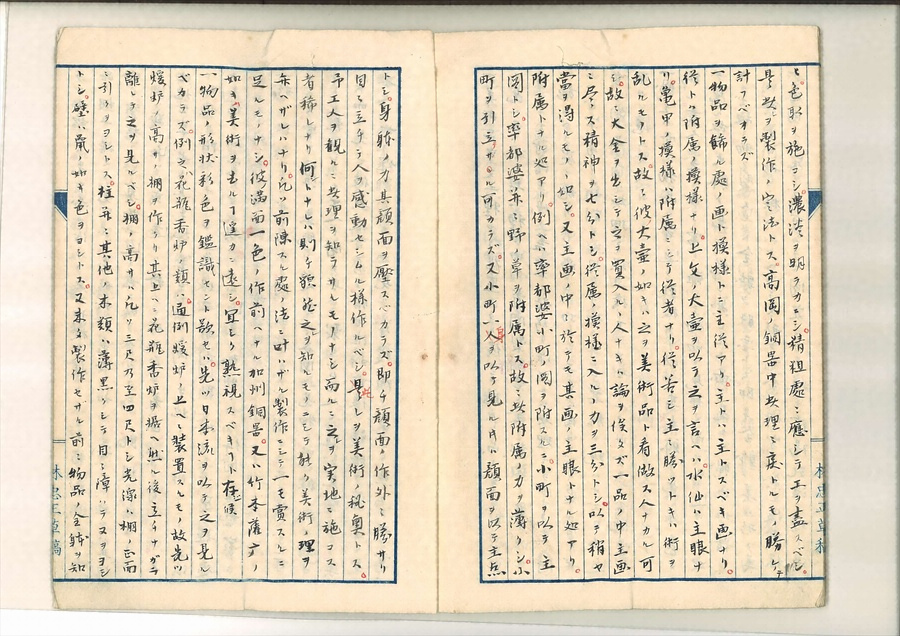 ミ色取ヲ施コシ濃淡ヲ明ラカニシ精粗處ニ應シテ工ヲ盡スベシ
是レ此ヲ製作ノ定法トス高岡ノ銅器中此理ニ戻トルモノ勝ケテ
計フベカラズ
一物品ヲ飾ル處ノ画ト模様トニ主従アリ主トハ主トスベキ画ナリ
従トハ附属ノ模様ナリ上文ノ大壷ヲ以テ之ヲ言ヘハ水仙ハ主眼ナ
リ亀甲ノ模様ハ附属ニシテ従者ナリ従若シ主ニ勝ツトキハ術ヲ
乱ルモノトス故ニ彼大壷ノ如キハ之ヲ美術品ト看做ス人ナカル可
シ故ニ大金ヲ出シテ之ヲ買入ル人ナキハ論ヲ俟タズ一品ノ中主画
ニ尽ス精神ヲ七分トシ従属ノ模様ニ入ルヽ力ヲ三分トシ以テ稍や
當ヲ得ルモノヽ如シ又主画ノ中ニ於テモ其画ノ主眼トナル処アリ
附属トナル処アリ例ヘハ率都婆小町ノ図ヲ附スルニ小町ヲ以テ主
図トシ率都婆并ニ野ノ草ヲ附属トス故ニ此附属ノ力ヲ薄クシ小
町ヲ引立サヽル可カラズ又小町一人ヲ以テ見ル片ハ顔面ヲ以テ主点
トシ身躰ノ力其顔面ヲ壓スベカラズ即チ顔面ノ作外ニ勝サリ
目ニ立チテ人ヲ感動セシムル様作ルベシ是レヲ美術ノ秘奥トス
予工人ヲ観ルニ此理ヲ知ラサルモノナシ而ルニ之ヲ実地ニ施コス
者稀レナリ何ントナレハ則チ貌然之ヲ知ルモノニシテ能ク美術ノ理ヲ
弁ヘザレハナリ凡ソ前陳スル處ノ法ニ叶ハザル製作ニシテ一モ賞スルニ
足ルモノナシ彼満面一色ノ作前ヘナル加州銅器又ハ竹本薩广ノ
如キ美術ヲ去ルヿ遙カニ遠シ宜シク熟視スベキヿト存候
一物品ノ形状彩色ヲ鑑識セント欲セハ先ツ日本流ヲ以テ之ヲ見ル
ベカラズ例之ハ花瓶香炉ノ類ハ通例煖炉ノ上ヘニ装置スルモノ故先ツ
煖炉ノ高サノ棚ヲ作クリ其上ヘニ花瓶香炉ヲ据ヘ然ル後ニ立チナガラ
離レテ之ヲ見ルベシ棚ノ高サハ凡ソ三尺乃至四尺トシ光源ハ棚ノ正面
ニ引クヲヨシトス柱并ニ其他ノ木類ハ薄黒クシテ目ニ障ハラヌヲヨシ
トシ壁ハ鼠ノ如キ色ヲヨシトス又未タ製作セサル前ニ物品ノ全躰ヲ知
林忠正草稿
林忠正草稿